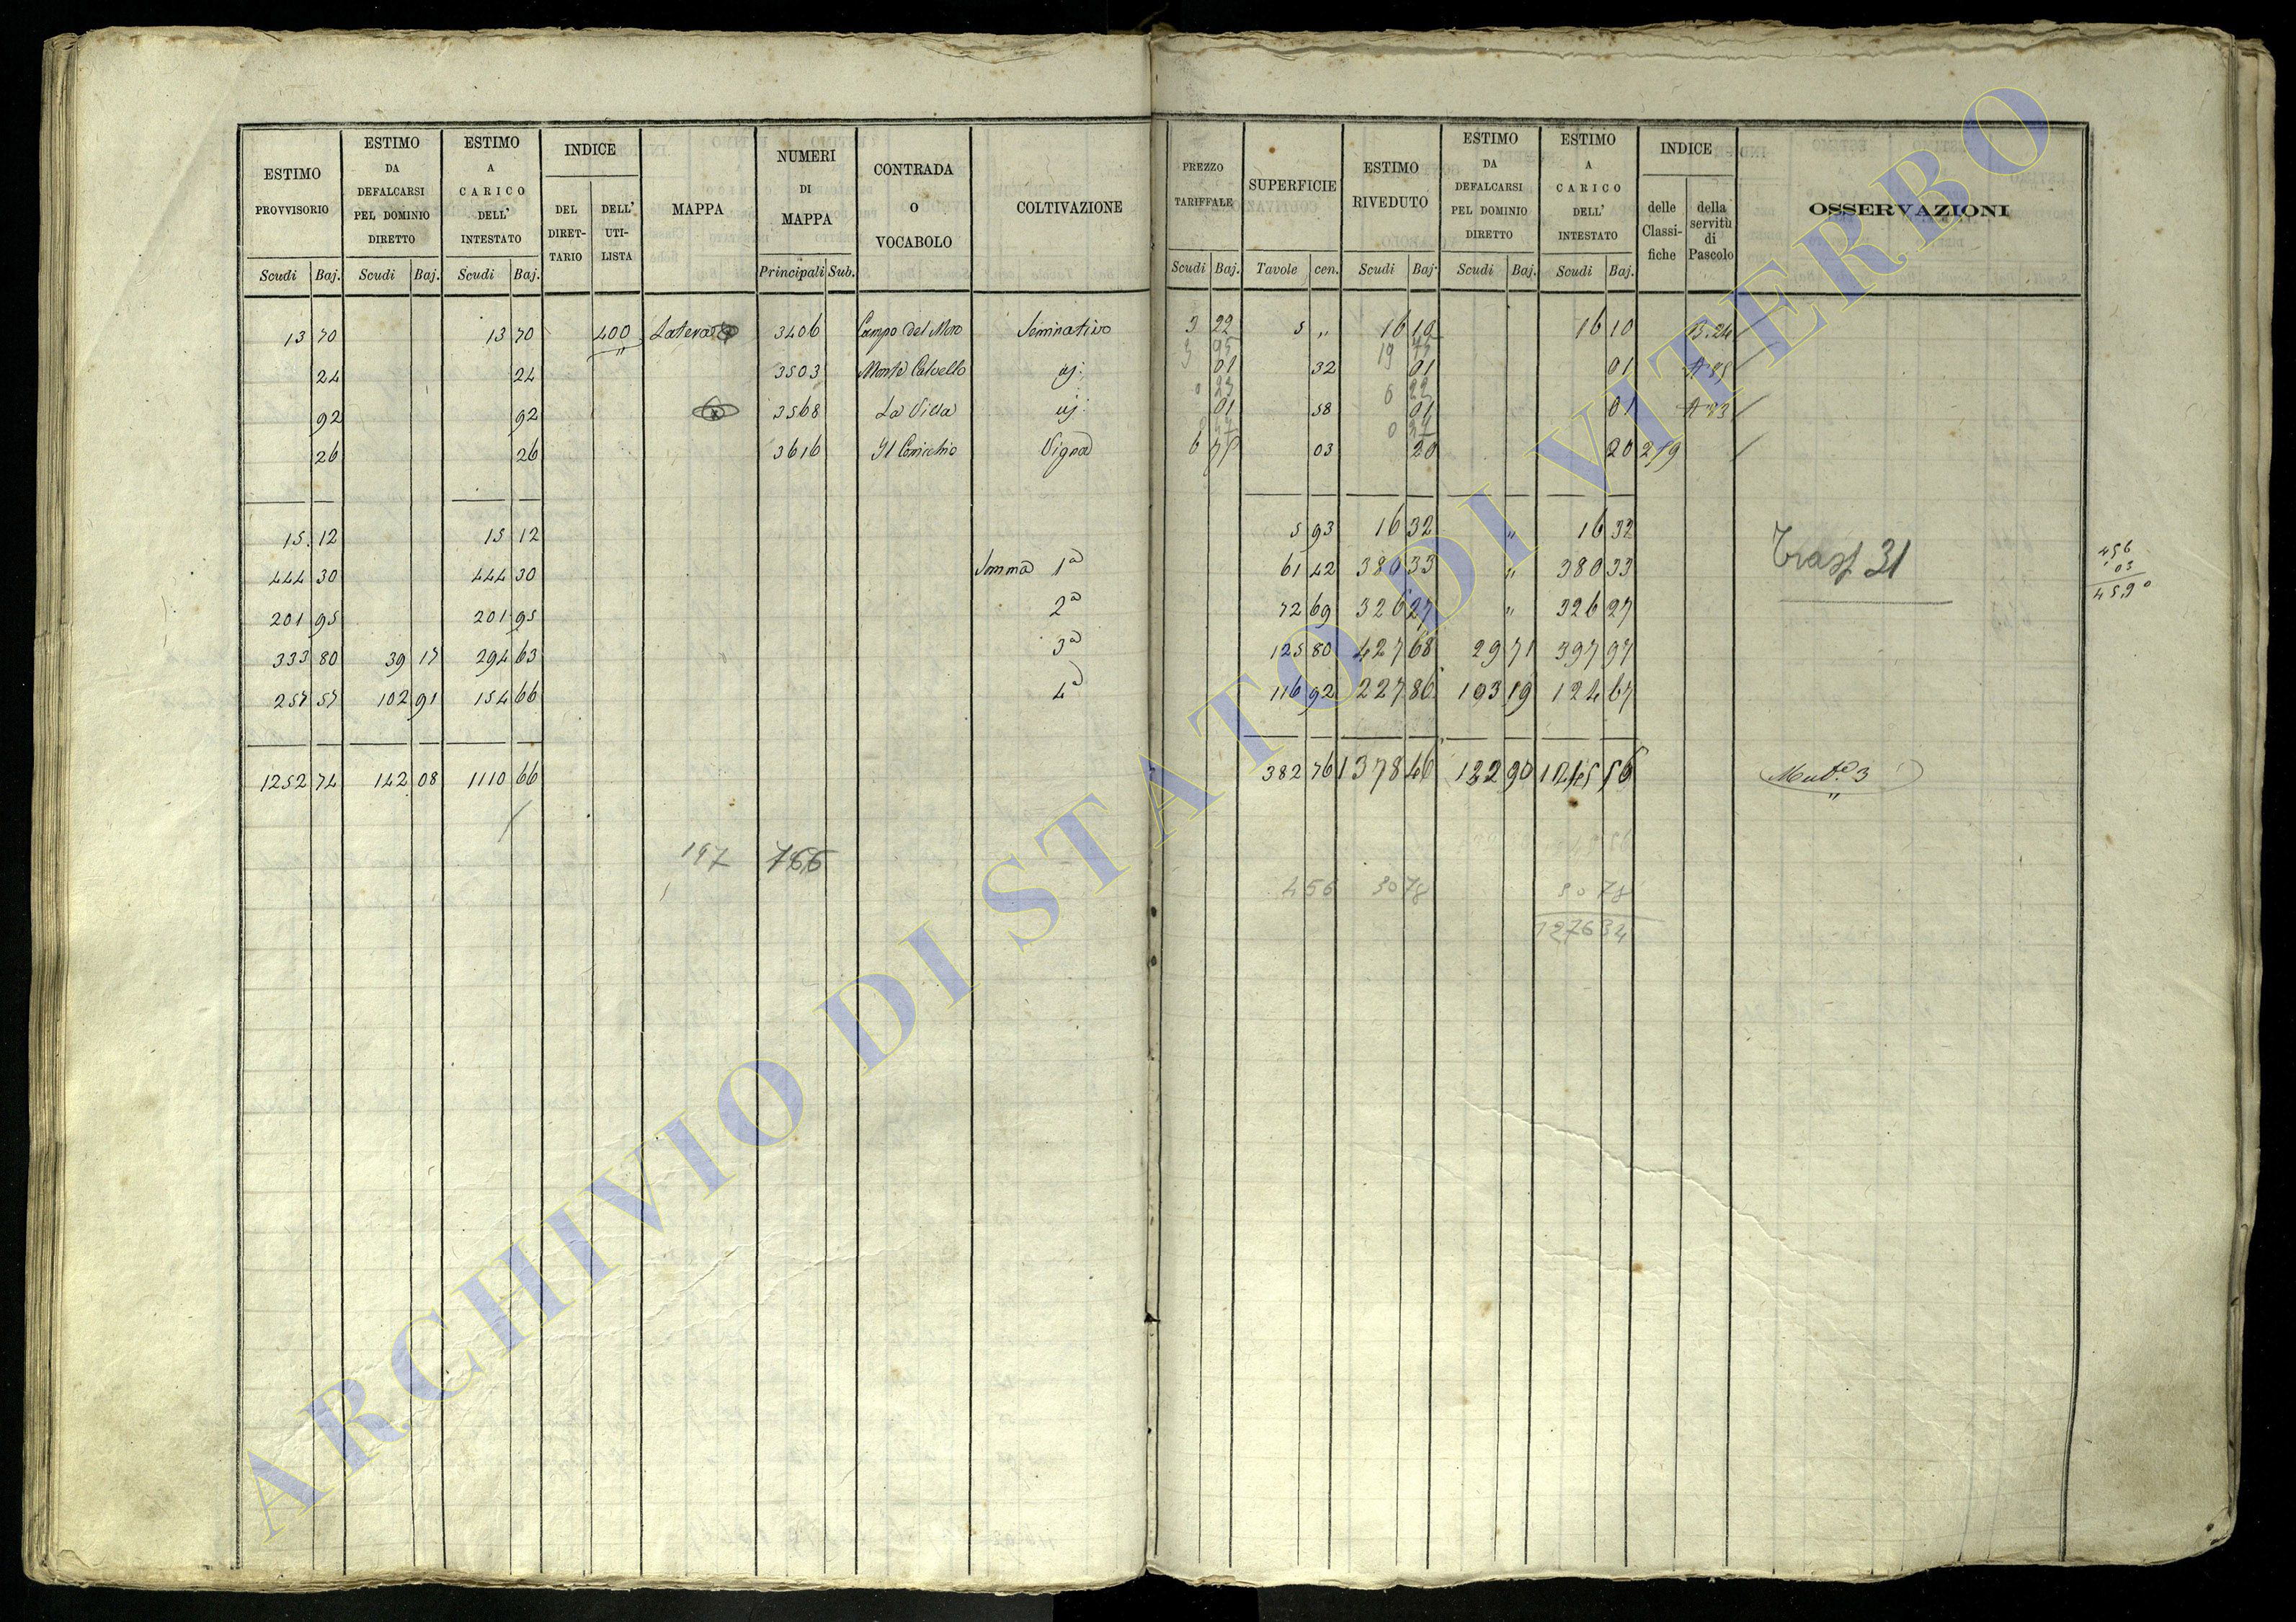 ESTIMO PROVVISORIO | ESTIMO DA DEFALCARSI PEL DOMINIO DIRETTO | ESTIMO A CARICO DELL' INTESTATO | INDICE | MAPPA | NUMERI DI MAPPA | CONTRADA O VOCABOLO | COLTIVAZIONE | PREZZO TARIFFALE | SUPERFICIE | ESTIMO RIVEDUTO | ESTIMO DA DEFALCARSI PEL DOMINIO DIRETTO | ESTIMO A CARICO DELL' INTESTATO | INDICE | OSSERVAZIONI
DEL DIRETTARIO | DELL' UTILISTA | delle Classifiche | della servitù di Pascolo
Scudi Baj. | Scudi Baj. | Scudi Baj. | Principali Sub. | Scudi Baj. | Tavole cen. | Scudi Baj. | Scudi Baj. | Scudi Baj.
13 70 | 13 70 | 400 | 3406 | Campo del Moro | Seminativo | 3 22 | 5 „ | 16 10 | 16 10 | B. 24
24 | 24 | 3503 | Monte Calvello | 01 | 32 | 01 | 01
92 | 92 | 3568 | La Villa | 01 | 58 | 01 | 01
26 | 26 | 3616 | Vigna | 6 75 | 03 | 20 | 20 | 259
15 12 | 15 12 | 5 93 | 16 32 | „ | 16 32
444 30 | 444 30 | Somma 1a | 61 42 | 380 33 | „ | 380 33 | Trasp 31
201 95 | 201 95 | 2a | 72 69 | 326 27 | „ | 326 27
333 80 | 39 17 | 294 63 | 3a | 125 80 | 427 68 | 29 71 | 397 97
257 57 | 102 91 | 154 66 | 4a | 116 92 | 227 86 | 103 19 | 124 67
1252 74 | 142 08 | 1110 66 | 382 76 | 1378 46 | 132 90 | 1245 56 | Mut.e 3
197 | 766
4 56 | 30 78 | 30 78
1276 34
456
03
459
ARCHIVIO DI STATO DI VITERBO